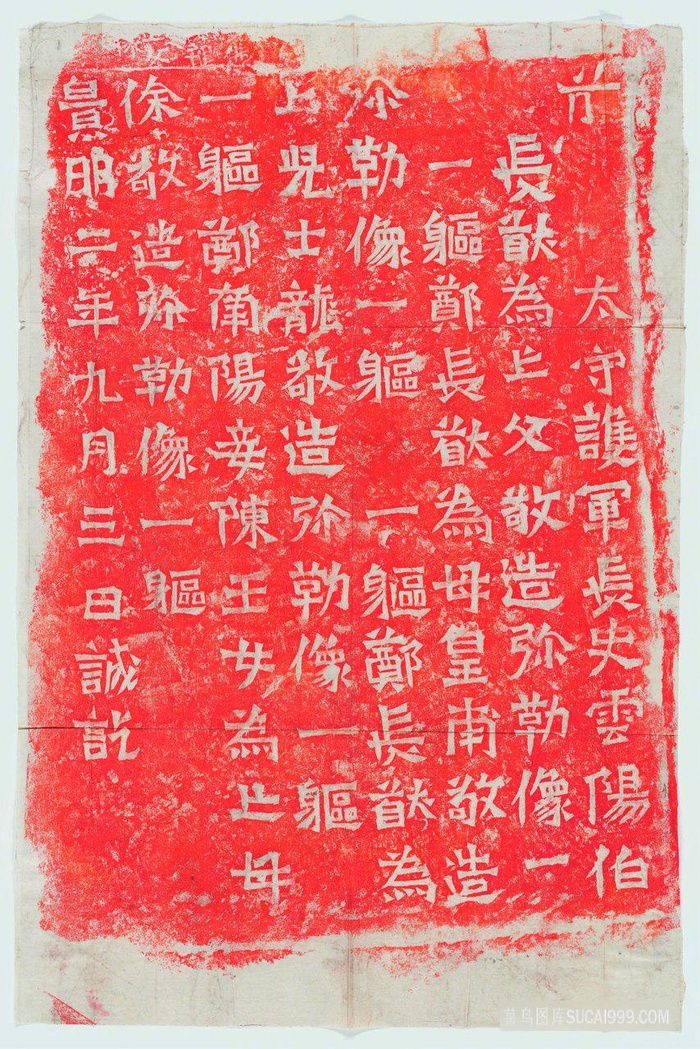 太守護軍長史雲陽伯
長猷為亡父敬造弥勒像一
一軀鄭長猷為母皇甫敬造
弥勒像一軀一軀鄭長猷為
亡兒士龍敬造弥勒像一軀
一軀鄭南陽妾陳王女為亡母
徐敬造弥勒像一軀
景明二年九月三日誠訖
菜鸟图库SUCAI999.COM